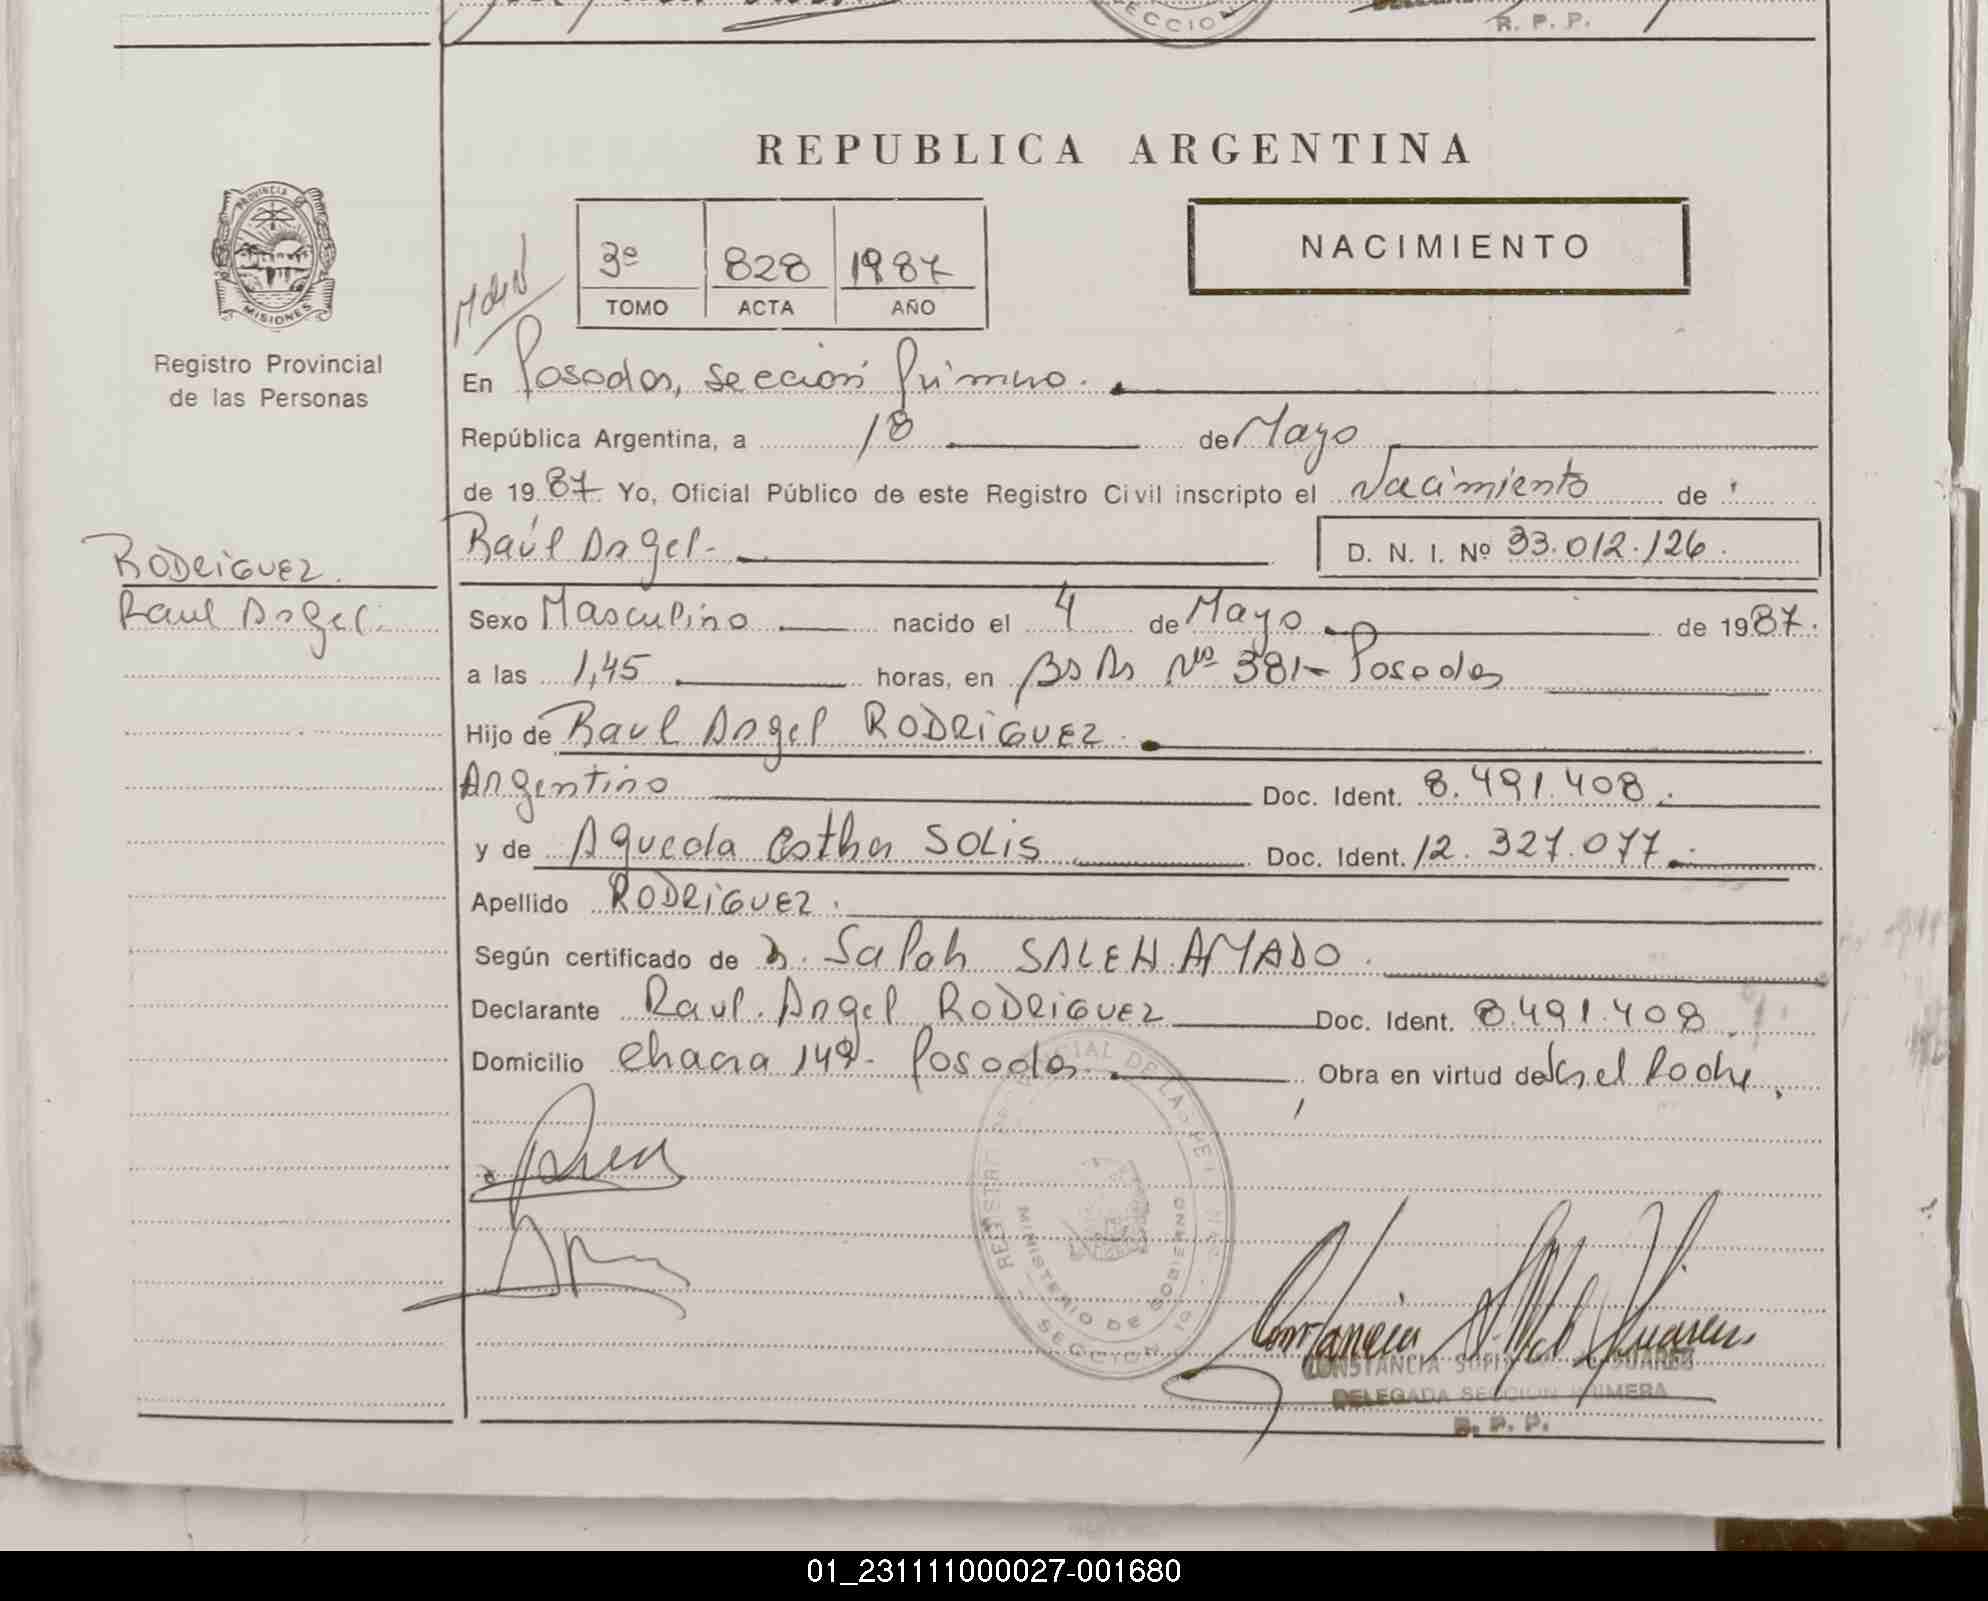 SECCION
R. P. P.
REPUBLICA ARGENTINA
PROVINCIA
MISIONES
Registro Provincial
de las Personas
3º 828 1987
TOMO ACTA AÑO
NACIMIENTO
En Posadas, Sección Primera.
República Argentina, a 18 de Mayo
de 1987 Yo, Oficial Público de este Registro Civil inscripto el Nacimiento de
Raúl Angel- D. N. I. Nº 33.012.126.
RODRIGUEZ.
Raul Angel.
Sexo Masculino nacido el 4 de Mayo de 1987.
a las 1,45 horas, en Bs As Nº 381- Posadas
Hijo de Raul Angel RODRIGUEZ.
Argentino Doc. Ident. 8.491.408.
y de Agueda Esther SOLIS Doc. Ident. 12.327.077.
Apellido RODRIGUEZ.
Según certificado de Salah SALEH AMADO.
Declarante Raul Angel RODRIGUEZ Doc. Ident. 8.491.408.
Domicilio Chacra 149- Posadas. Obra en virtud de
MINISTERIO DE GOBIERNO
SECCION 1ª
Constancia Suarez
CONSTANCIA SOFIA SUAREZ
DELEGADA SECCION PRIMERA
R. P. P.
01_231111000027-001680